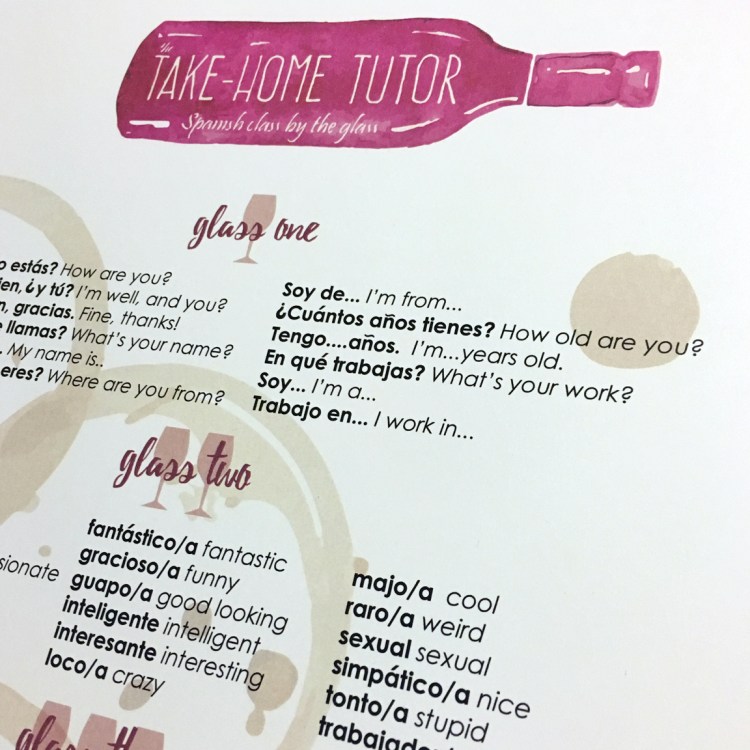 The
TAKE-HOME TUTOR
Spanish class by the glass
glass one
estás? How are you?
¿y tú? I'm well, and you?
gracias. Fine, thanks!
llamas? What's your name?
My name is..
eres? Where are you from?
Soy de... I'm from...
¿Cuántos años tienes? How old are you?
Tengo....años. I'm...years old.
En qué trabajas? What's your work?
Soy... I'm a...
Trabajo en... I work in...
glass two
fantástico/a fantastic
gracioso/a funny
guapo/a good looking
inteligente intelligent
interesante interesting
loco/a crazy
majo/a cool
raro/a weird
sexual sexual
simpático/a nice
tonto/a stupid
glass